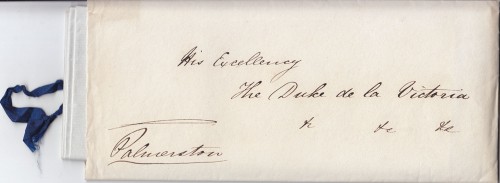 His Excellency
The Duke de la Victoria
&c &c &c
Palmerston